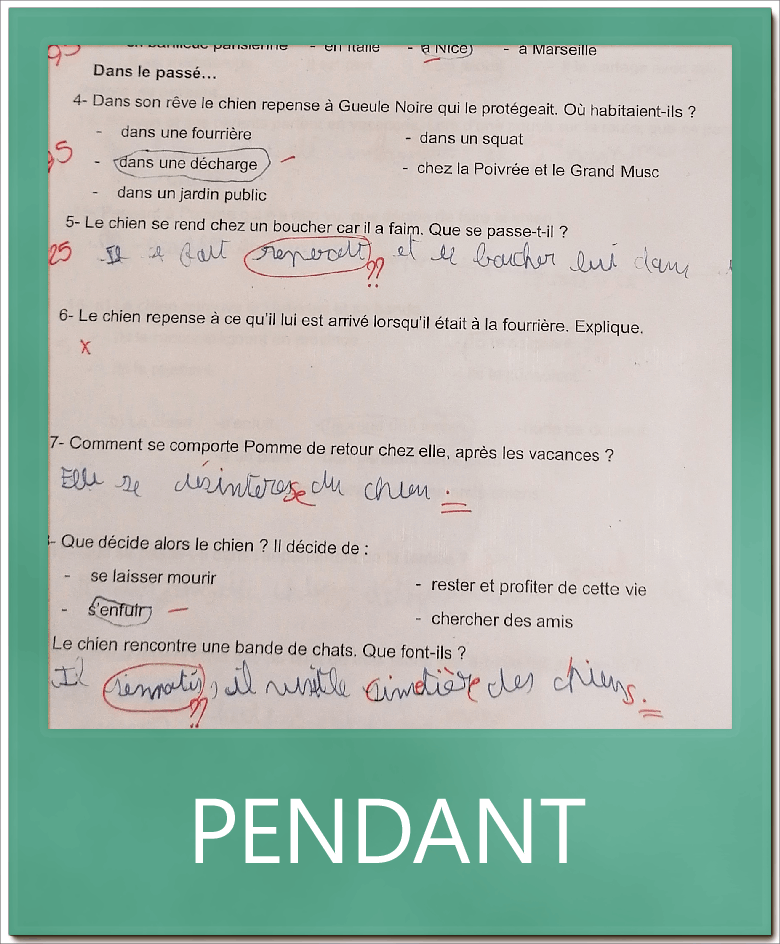 95 en banlieue parisienne - en Italie - à Nice) - à Marseille
Dans le passé...
4- Dans son rêve le chien repense à Gueule Noire qui le protégeait. Où habitaient-ils ?
- dans une fourrière - dans un squat
- dans une décharge - chez la Poivrée et le Grand Musc
- dans un jardin public
5- Le chien se rend chez un boucher car il a faim. Que se passe-t-il ?
25 Il se fait et le boucher lui
??
6- Le chien repense à ce qu'il lui est arrivé lorsqu'il était à la fourrière. Explique.
X
7- Comment se comporte Pomme de retour chez elle, après les vacances ?
Elle se désinteresse du chien.
- Que décide alors le chien ? Il décide de :
- se laisser mourir - rester et profiter de cette vie
- s'enfuir - chercher des amis
Le chien rencontre une bande de chats. Que font-ils ?
Il , il le cimetière des chiens.
??
PENDANT